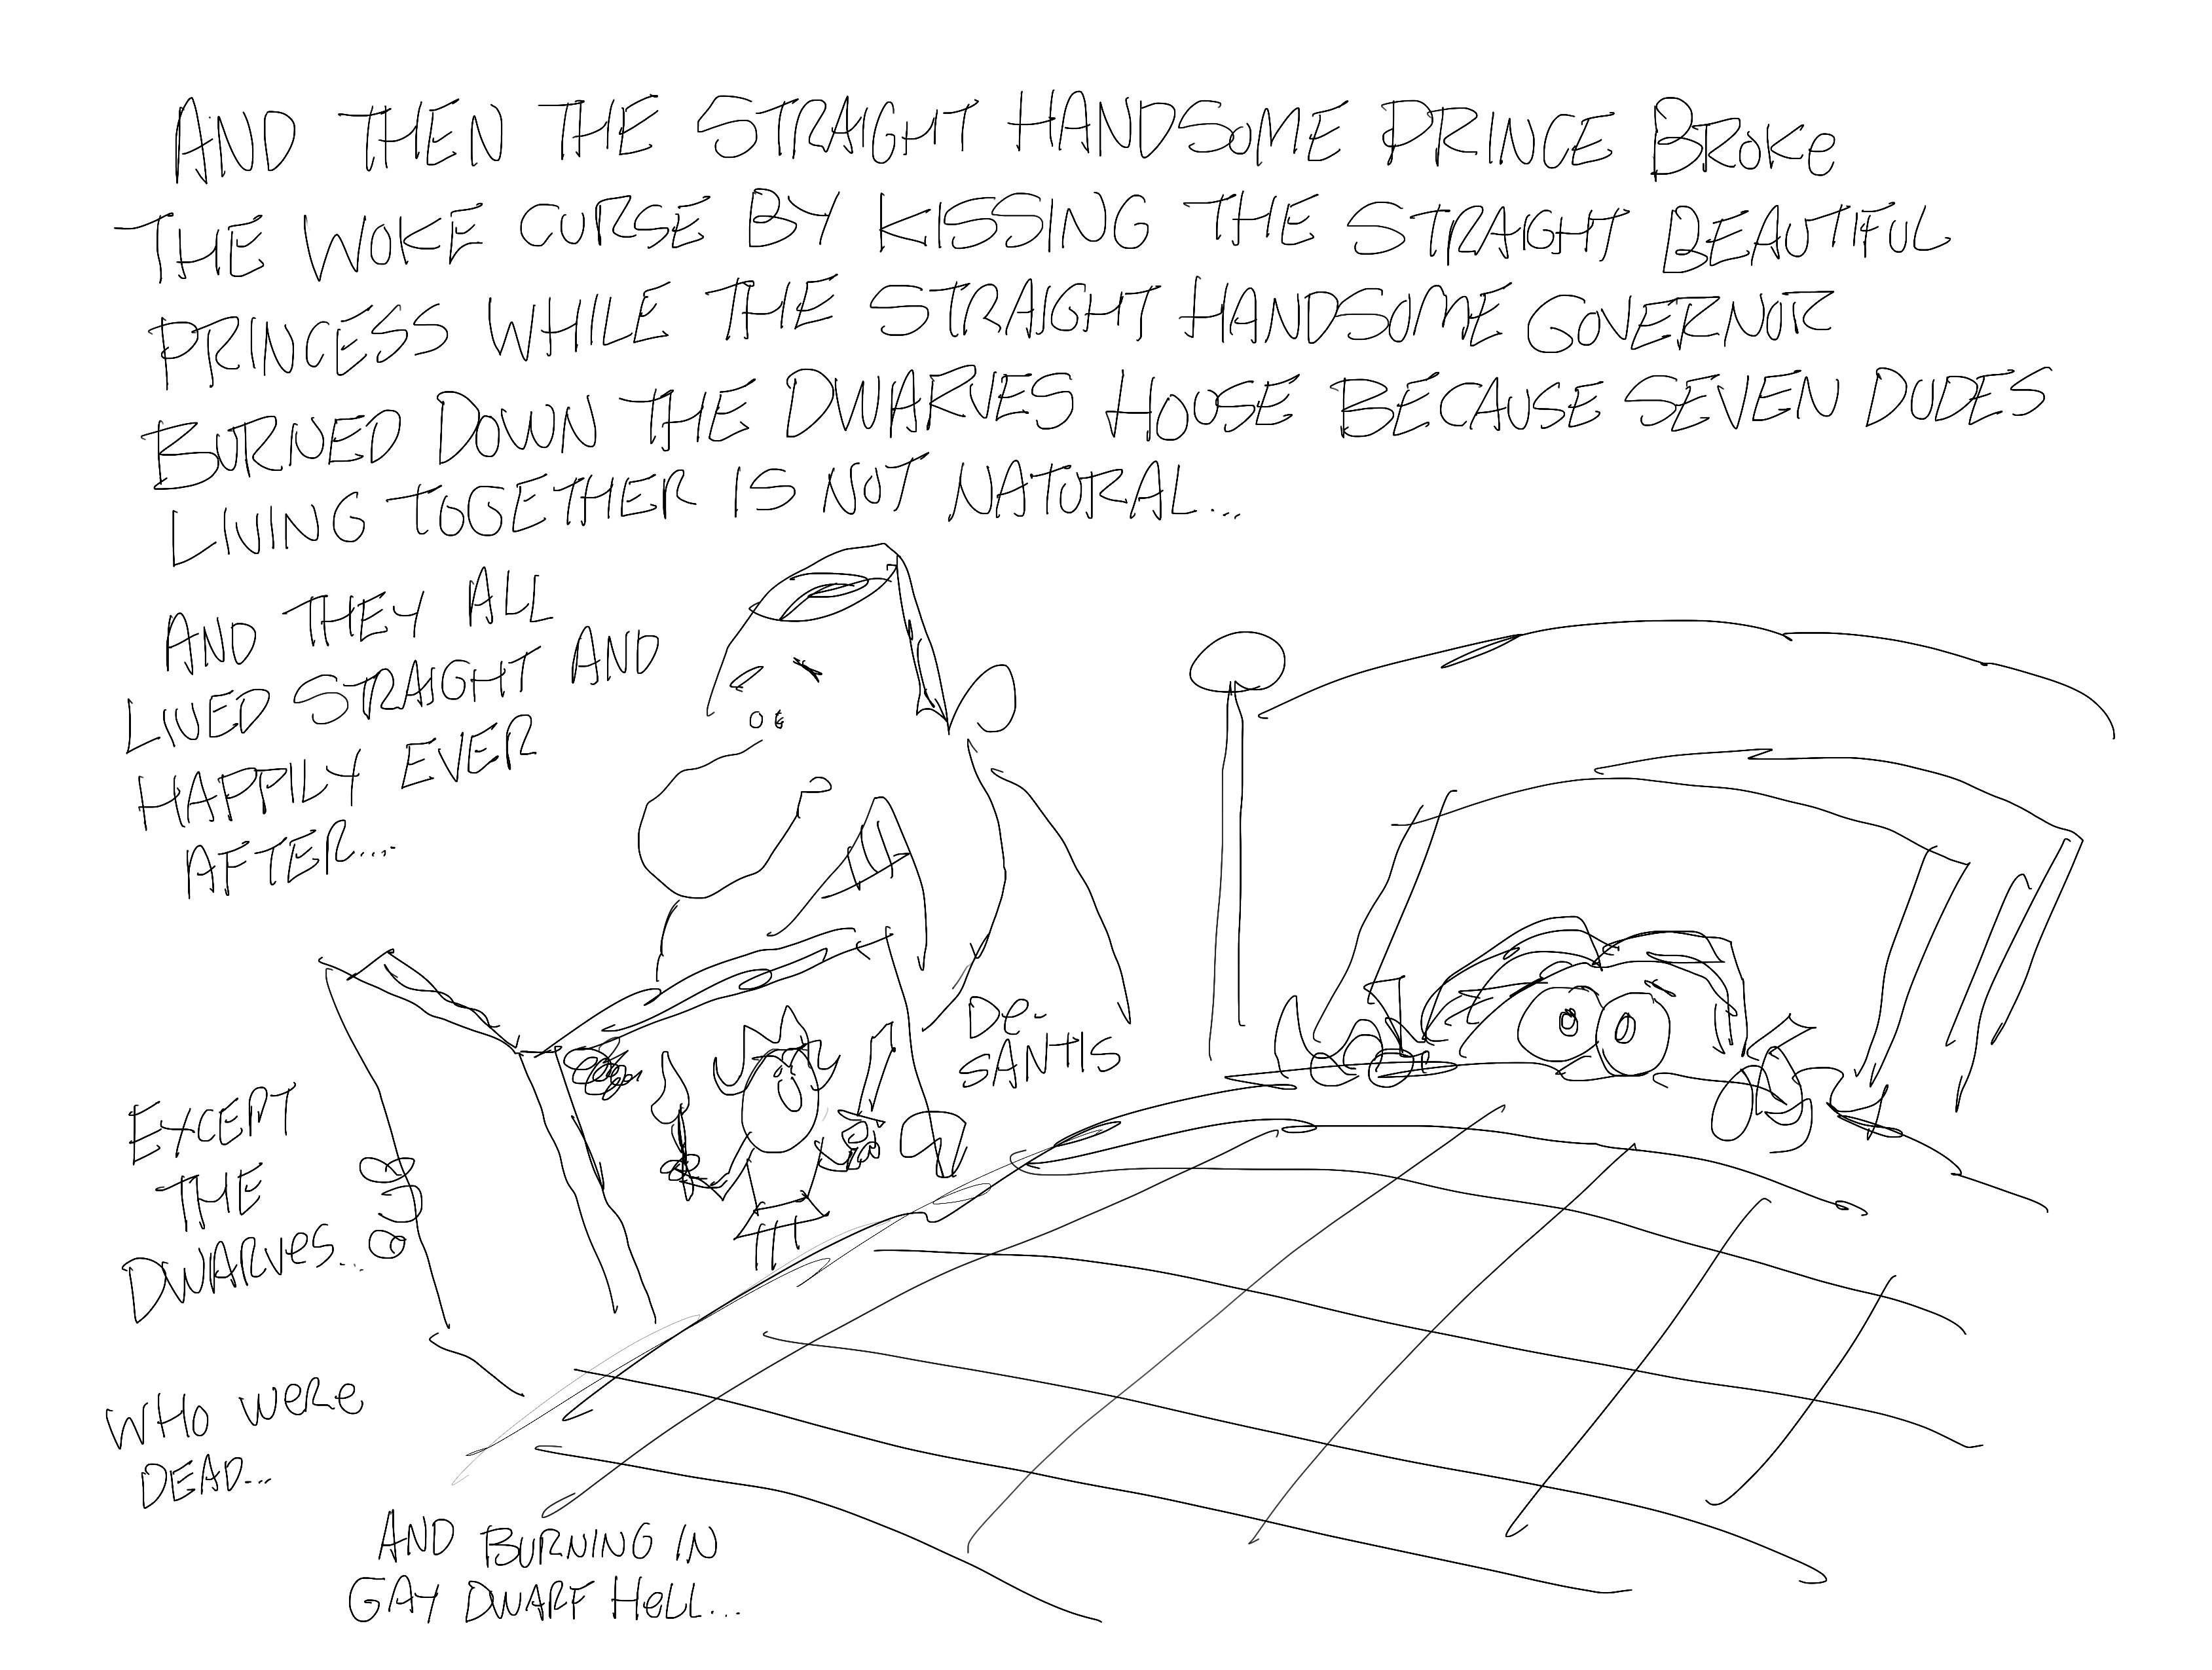 AND THEN THE STRAIGHT HANDSOME PRINCE BROKE
THE WOKE CURSE BY KISSING THE STRAIGHT BEAUTIFUL
PRINCESS WHILE THE STRAIGHT HANDSOME GOVERNOR
BURNED DOWN THE DWARVES HOUSE BECAUSE SEVEN DUDES
LIVING TOGETHER IS NOT NATURAL...
AND THEY ALL
LIVED STRAIGHT AND
HAPPILY EVER
AFTER....
DE-
SANTIS
EXCEPT
THE
DWARVES...
WHO WERE
DEAD...
AND BURNING IN
GAY DWARF HELL...